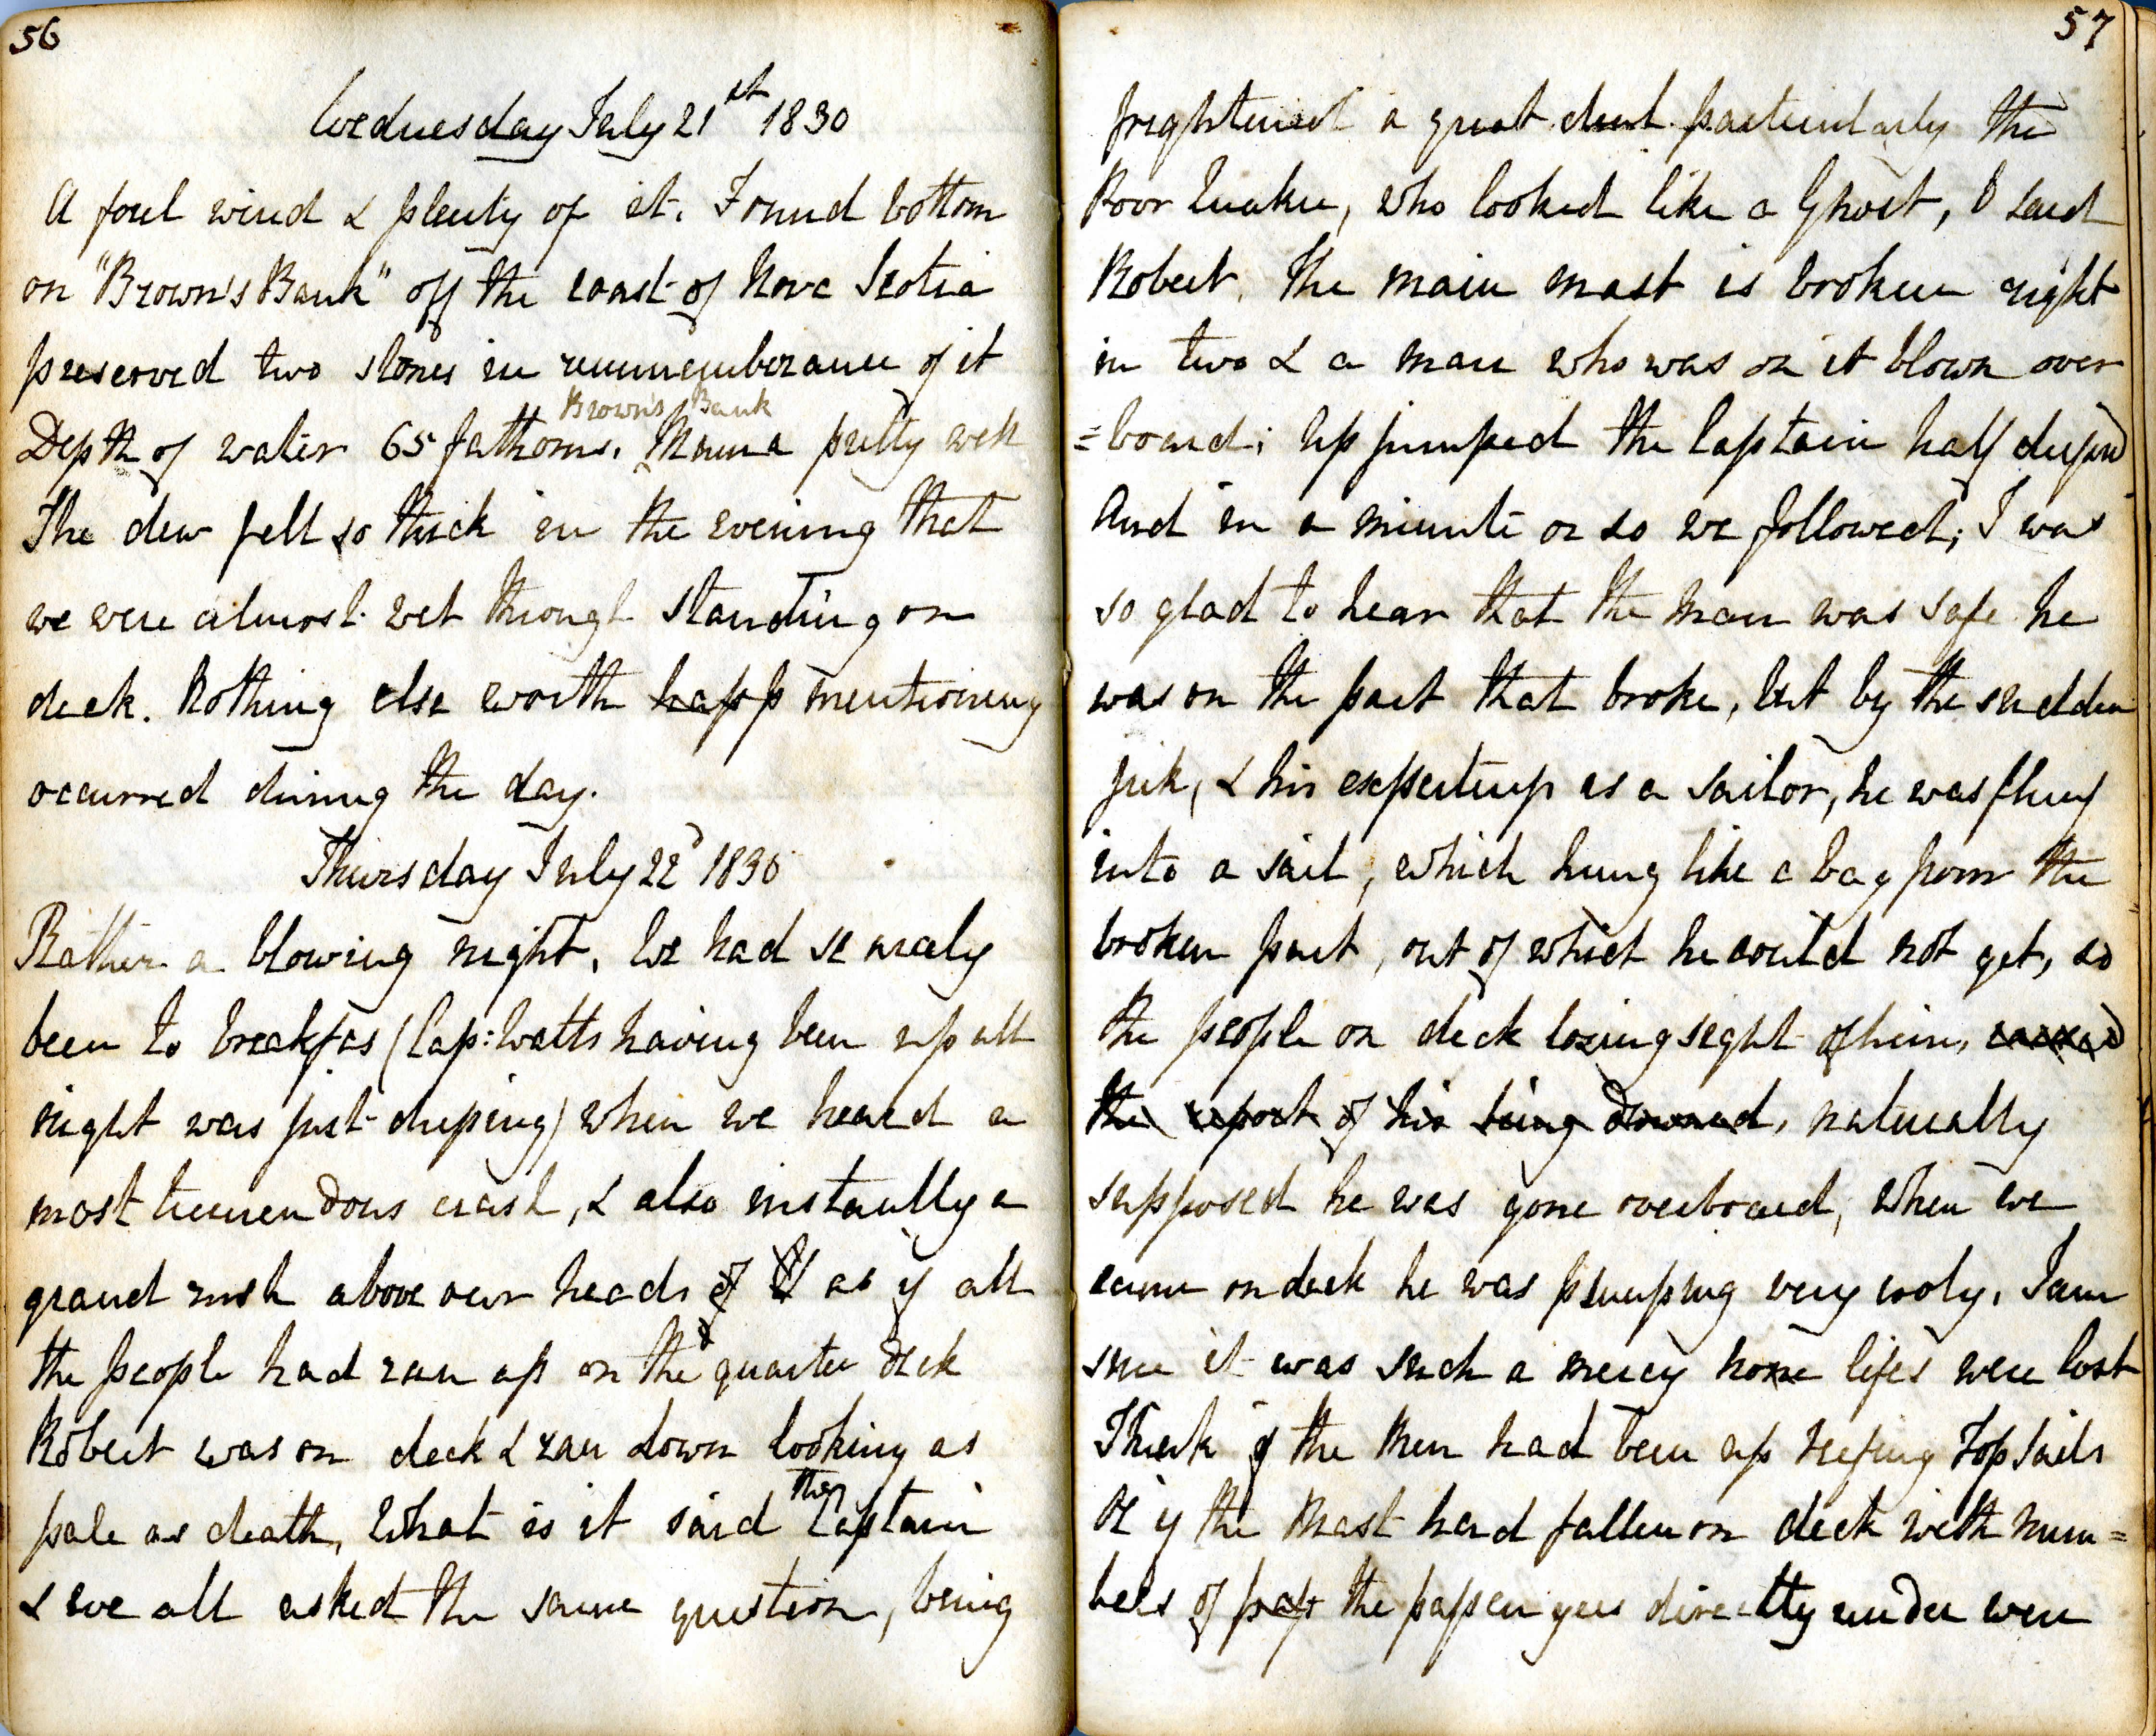 56
Wednesday July 21st 1830
A foul wind & plenty of it. Found bottom
on "Brown's Bank" off the coast of Nova Scotia
preserved two stones in rememberance of it
Brown's Bank
Depth of water 65 fathoms. Mama pretty well
The dew fell so thick in the evening that
we were almost wet through standing on
deck. Nothing else worth happ mentioning
occurred during the day.
Thursday July 22d 1830
Rather a blowing night. We had scarcely
been to breakfas (Cap: Watts having been up all
night was just dressing) when we heard a
most tremendous crash, & also instantly a
grand rush above our heads of as if all
the people had ran up on the quarter deck
Robert was on deck & ran down looking as
pale as death, What is it said the Captain
& we all asked the same question, being
57
frightened a great deal particularly the
Poor Quaker, who looked like a Ghost, O said
Robert, the main mast is broken right
in two & a man who was on it blown over
=board; up jumped the Captain half dressed
And in a minute or so we followed; I was
so glad to hear that the man was safe he
was on the part that broke, but by the sudden
jirk, & his expertness as a sailor, he was flung
into a sail, which hung like a bag from the
broken part, out of which he could not get, so
the people on deck losing sight of him,
the report of his being drowned, naturally
supposed he was gone overboard, when we
came on deck he was pumping very cooly. I am
sure it was such a mercy none lifes were lost
Think if the men had been up reefing Topsails
Or if the Mast had fallen on deck with num=
bers of pass the passengers directly under were